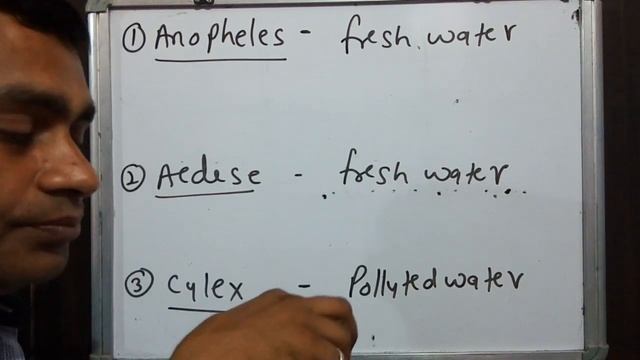 ① Anopheles - fresh water
② Aedese - fresh water
③ Cylex - Pollyted water